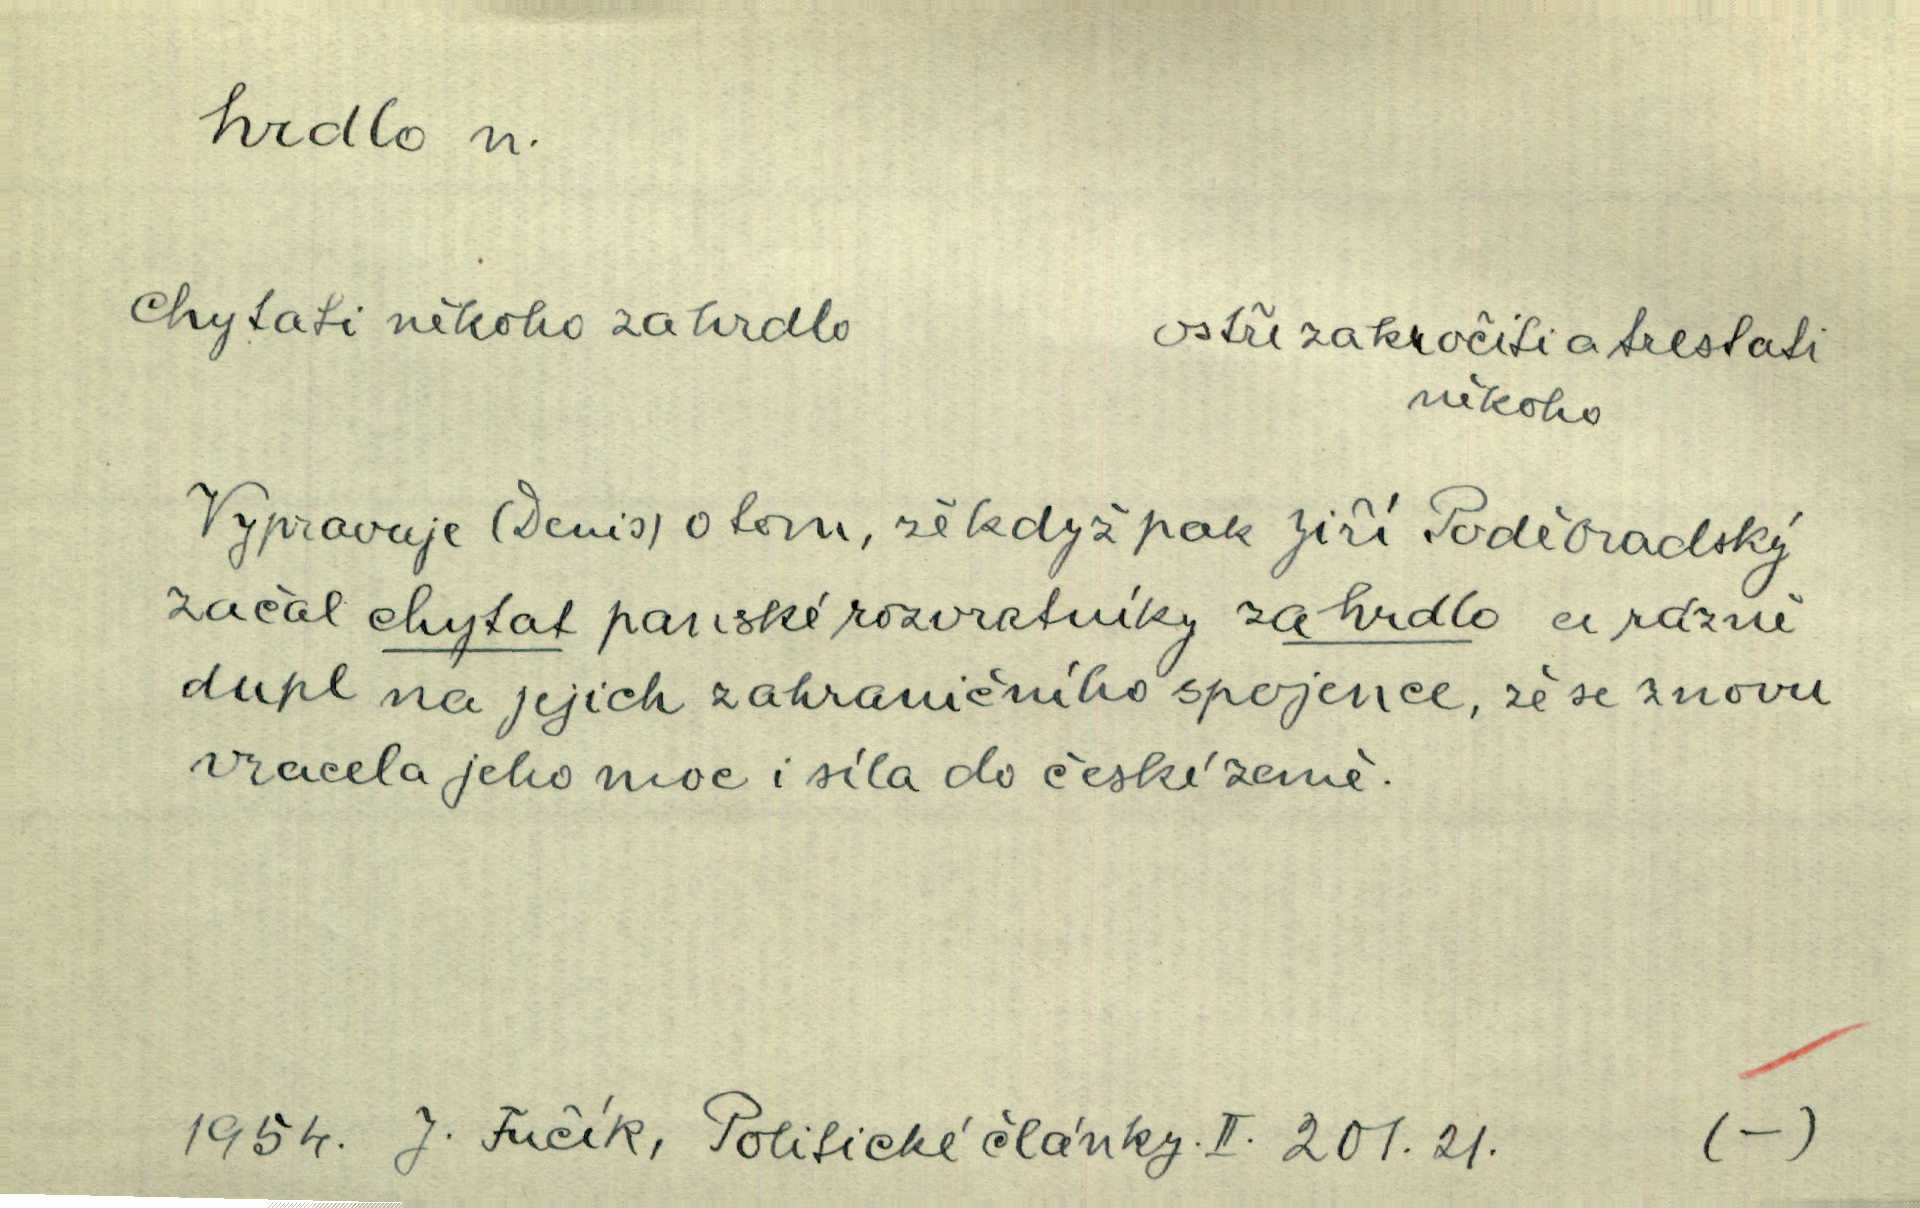 hrdlo n.
Chytati někoho za hrdlo
ostře zakročiti a trestati
někoho
Vypravuje (Denis) o tom, že když pak Jiří Poděbradský
začal chytat panské rozvratníky za hrdlo a rázně
dupl na jejich zahraničního spojence, že se znovu
vracela jeho moc i síla do české země.
1954. J. Fučík, Politické články. II. 201. 21. (–)